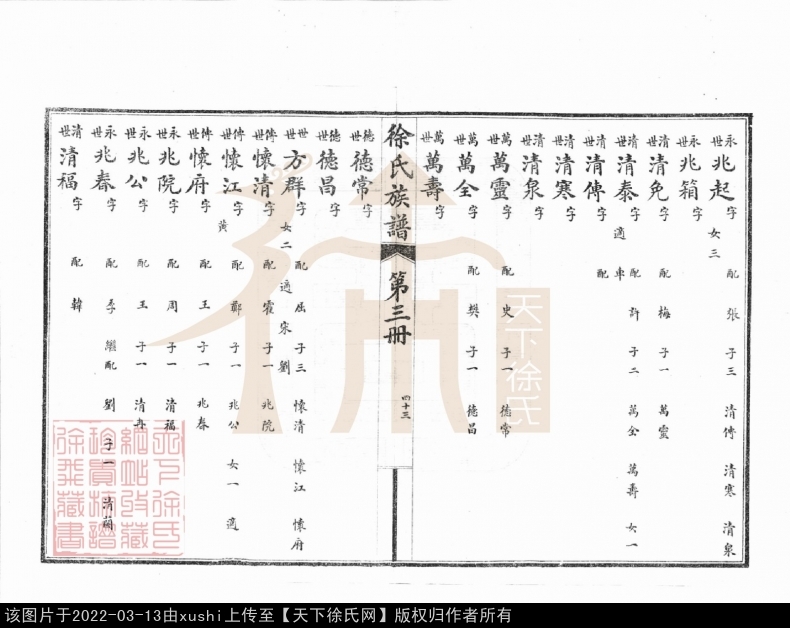 永世 兆起 字 配 張 子三 清傳 清寒 清泉
女三
永世 兆箱 字
清世 清免 字 配 梅 子一 萬靈
清世 清泰 字 配 許 子二 萬全 萬壽 女一
適 車
清世 清傳 字 配
清世 清寒 字
清世 清泉 字
萬世 萬靈 字 配 史 子一 德常
萬世 萬全 字 配 樊 子一 德昌
萬世 萬壽 字
徐氏族譜 第三册 四十三
德世 德常 字
德世 德昌 字
世世 方群 字 配 屈 子三 懷清 懷江 懷府
女二 適 宋 劉
傳世 懷清 字 配 霍 子一 兆院
傳世 懷江 字 配 鄭 子一 兆公 女一 適
黄
傳世 懷府 字 配 王 子一 兆春
永世 兆院 字 配 周 子一 清福
永世 兆公 字 配 王 子一 清
永世 兆春 字 配 李 繼配 劉 子一 清蘭
清世 清福 字 配 韓
天下徐氏
该图片于2022-03-13由xushi上传至【天下徐氏网】版权归作者所有